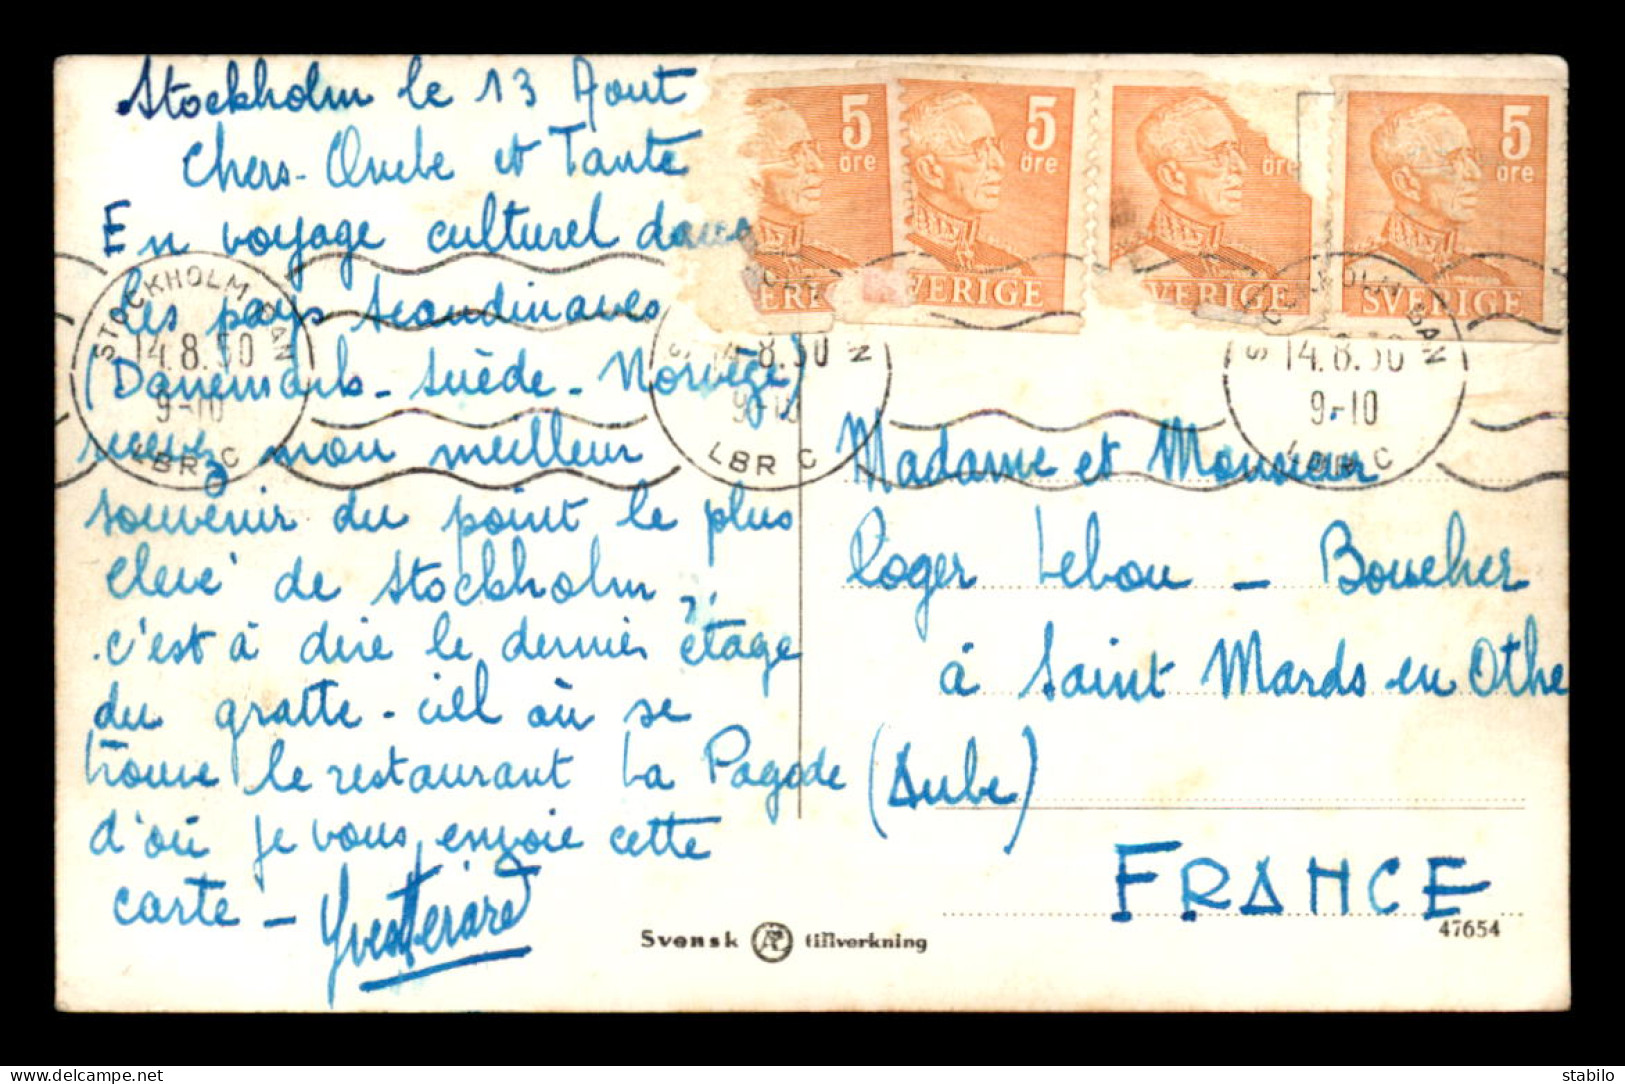 Stockholm le 13 Aout
Chers Oncle et Tante
En voyage culturel dans
les pays scandinaves
(Danemark - Suède - Norvège)
recevez mon meilleur
souvenir du point le plus
élevé de Stockholm,
c'est à dire le dernier étage
du gratte-ciel où se
trouve le restaurant La Pagode
d'où je vous envoie cette
carte -
5 öre
SVERIGE
5 öre
SVERIGE
öre
SVERIGE
5 öre
SVERIGE
STOCKHOLM BAN
14.8.50
9-10
LBR C
14.8.50
9-10
LBR C
STOCKHOLM BAN
14.8.50
9-10
LBR C
Madame et Monsieur
Roger Lebou - Boucher
à Saint Mards-en Othe
(Aube)
FRANCE
47654
Svensk tillverkning
stabilo